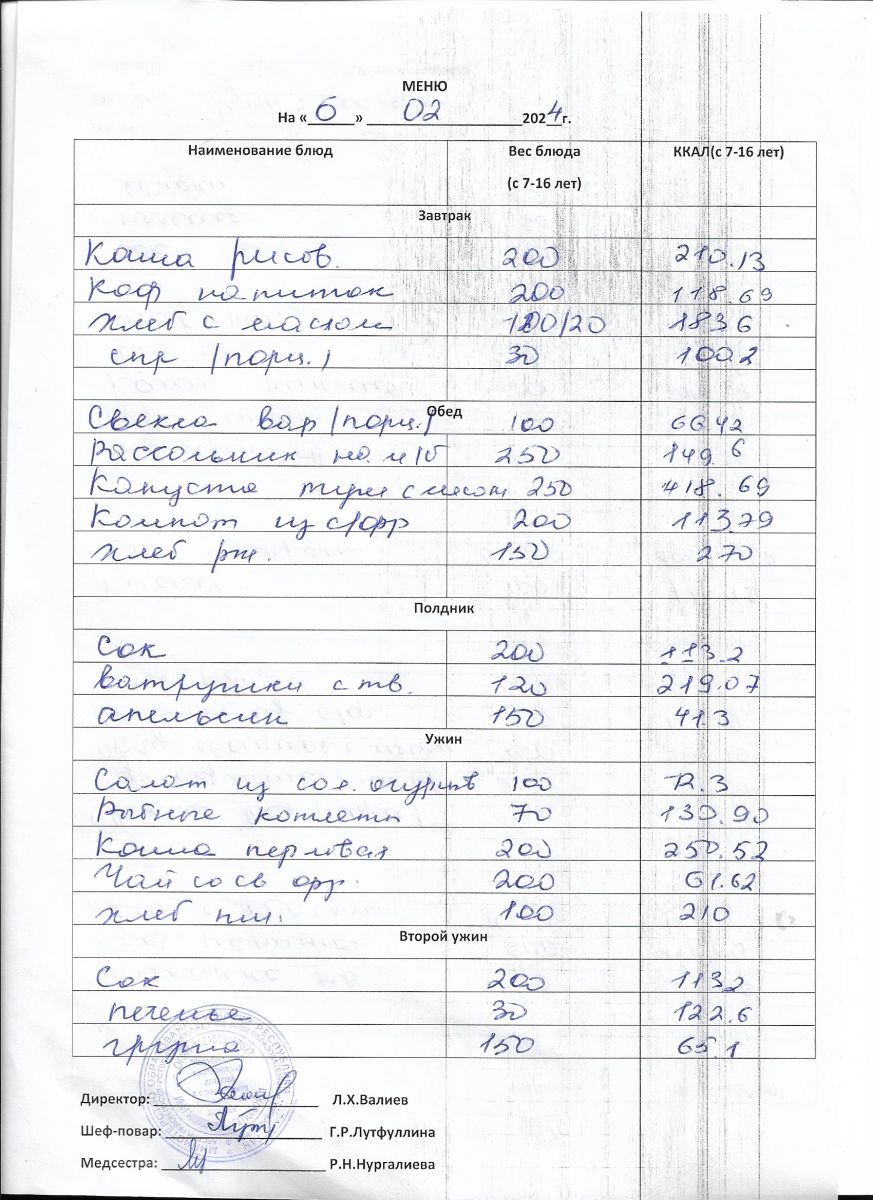 МЕНЮ
На « 6 » 02 2024 г.
Наименование блюд Вес блюда (с 7-16 лет) ККАЛ(с 7-16 лет)
Завтрак
Каша рисов. 200 210.13
Коф напиток 200 118.69
Хлеб с маслом 100/20 183 6
сыр (порц.) 30 100.2
Обед
Свекла вар (порц.) 100 66 42
Рассольник на м/б 250 149. 6
Капуста туш с мясом 250 418. 69
Компот из с/фр 200 113.79
Хлеб рж. 150 270
Полдник
Сок 200 113.2
Ватрушки с тв. 120 219.07
апельсин 150 41.3
Ужин
Салат из сол. огурцов 100 72.3
Рыбные котлеты 70 130.90
Каша перловая 200 250.52
Чай со св фр. 200 61.62
Хлеб пш. 100 210
Второй ужин
Сок 200 113 2
печенье 30 122.6
груша 150 65.1
Директор: Л.Х.Валиев
Шеф-повар: Г.Р.Лутфуллина
Медсестра: Р.Н.Нургалиева